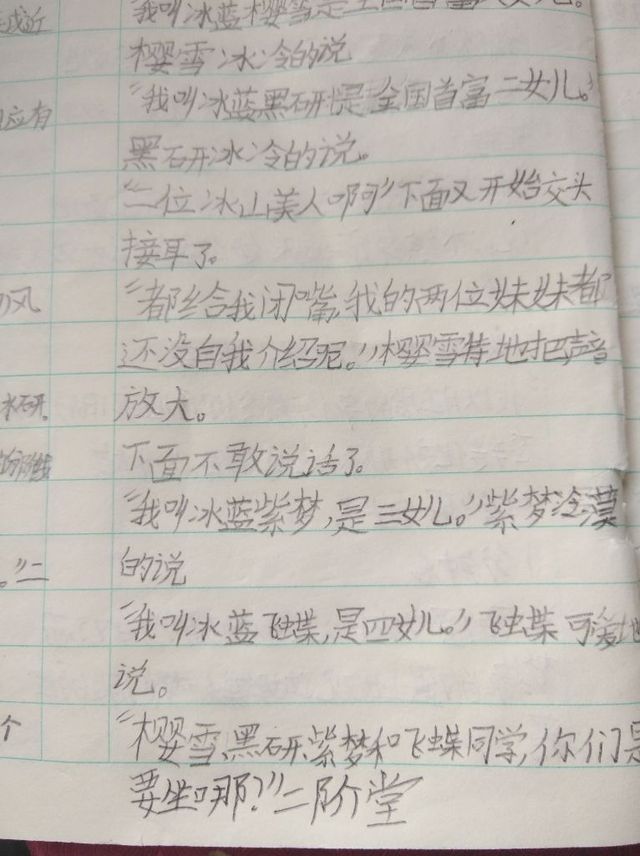 戊近
"我叫冰蓝樱雪是全国首富大女儿。
樱雪冰冷的说
应有
"我叫冰蓝黑研是全国首富二女儿。"
黑研冰冷的说。
"二位冰山美人啊"下面又开始交头
接耳了。
风
"都给我闭嘴,我的两位妹妹都
还没自我介绍呢。"樱雪特地把声音
冰研
放大。
阶线
下面不敢说话了。
"我叫冰蓝紫梦,是三女儿。"紫梦冷漠
。"二
的说
"我叫冰蓝飞蝶,是四女儿。"飞蝶可爱地
说。
个
"樱雪、黑研、紫梦和飞蝶同学,你们是
要坐哪?"二阶堂